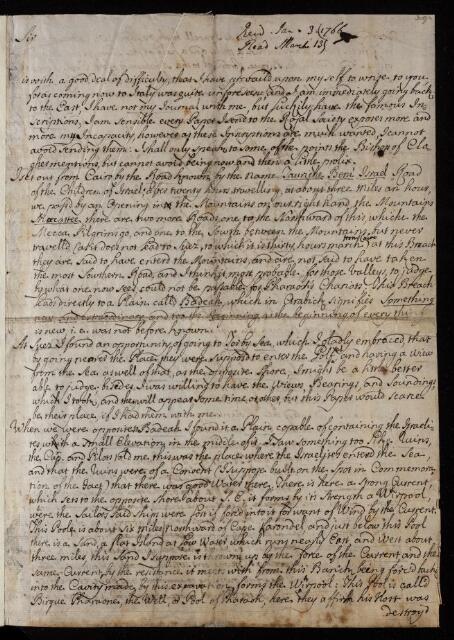 Sir
Recd Jan. 3 1766
Read March 13
it is with a good deal of difficulty, that I have prevailed upon my self to write to you
for as coming now to Italy was quite unforeseen and I am immediately going back
to the East, I have not my Journal with me, but luckily have the famous In-
scriptions, I am sensible every Paper I send to the Royal Society exposes more and
more my Incapacity, however as these Inscriptions are much wanted I cannot
avoid sending them: I shall only answer to some of the points the Bishop of Clo
gher mentions, but cannot avoid being now and then a little prolix.
I set out from Cairo by the Road known by the name Beni Israel Road
of the Children of Israel; after twenty hours travelling, at about three Miles an hour,
we pass'd by an Opening in the Mountains on our right hand, the Mountains
there are two more Roads, one to the Northward of this, which the
Mecca Pilgrims go, and one to the South between the Mountains, but never
travelled (as it does not lead to Suez, to which it is thirty hours march from Cairo) at this Breach
they are said to have enterd the Mountains, and are not said to have taken
the most Southern Road, and I think it most probable, for those Valleys, to judge
by what one now sees, could not be passable for Pharaoh's Chariots: This Breach
leads directly to a Plain call'd Badeah, which in Arabick signifies Something
new and extraordinary, and too the Beginning, as the beginning of every thing
is new, i.e. was not before known.
At Suez I found an opportunity of going to Tor by Sea, which I gladly embraced that
by going nearer the Place, they were supposed to enter the Gulf and having a View
from the Sea as well as of that, as the opposite Shore, I might be a little better
able to judge, besides I was willing to have the Views, Bearings, and Soundings
which I took, and they will appear some time or other, but this Paper would scarce
be their place, if I had them with me.
When we were opposite Badeah I found it a Plain, capable of containing the Israeli-
tes with a Small Elevation, in the middle of it I saw something too like Ruins,
the Cap. and Pilots told me, this was the place where the Israelites enter'd the Sea,
and that the Ruins were of a Convent (I suppose built on the spot in Commemora-
tion of the fact) that there was good Water there; There is here a Strong Current,
which sets to the opposite Shore, about S.E. it forms by its Strength a Wirpool,
were the Sailors said Ships were lost if forc'd into it for want of Wind by the Current
This Pool, is about six Miles northward of Cape Karondel and just below this Pool
there is a Sand, a flat Island at low Water which runs nearly East and West about
three miles this Sand I suppose is thrown up by the force of the Current and the
same Current by the resistance it meets with from this Bank, being forced back
into the Cavity made by this excavation, forms the Wirpool: This Pool is call'd
Birque Pharaone, the Well, or Pool of Pharaoh, here they affirm his Host was
destroy'd